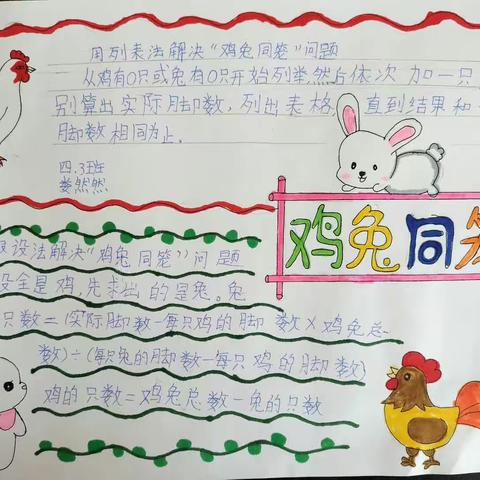 用列表法解决“鸡兔同笼”问题
从鸡有0只或兔有0只开始列举然后依次加一只
别算出实际脚数,列出表格,直到结果和
脚数相同为止。
四.3班
娄然然
鸡兔同笼
设法解决“鸡兔同笼”问题
设全是鸡,先求出的是兔。兔
只数=(实际脚数-每只鸡的脚数×鸡兔总
数)÷(每只兔的脚数-每只鸡的脚数)
鸡的只数=鸡兔总数-兔的只数